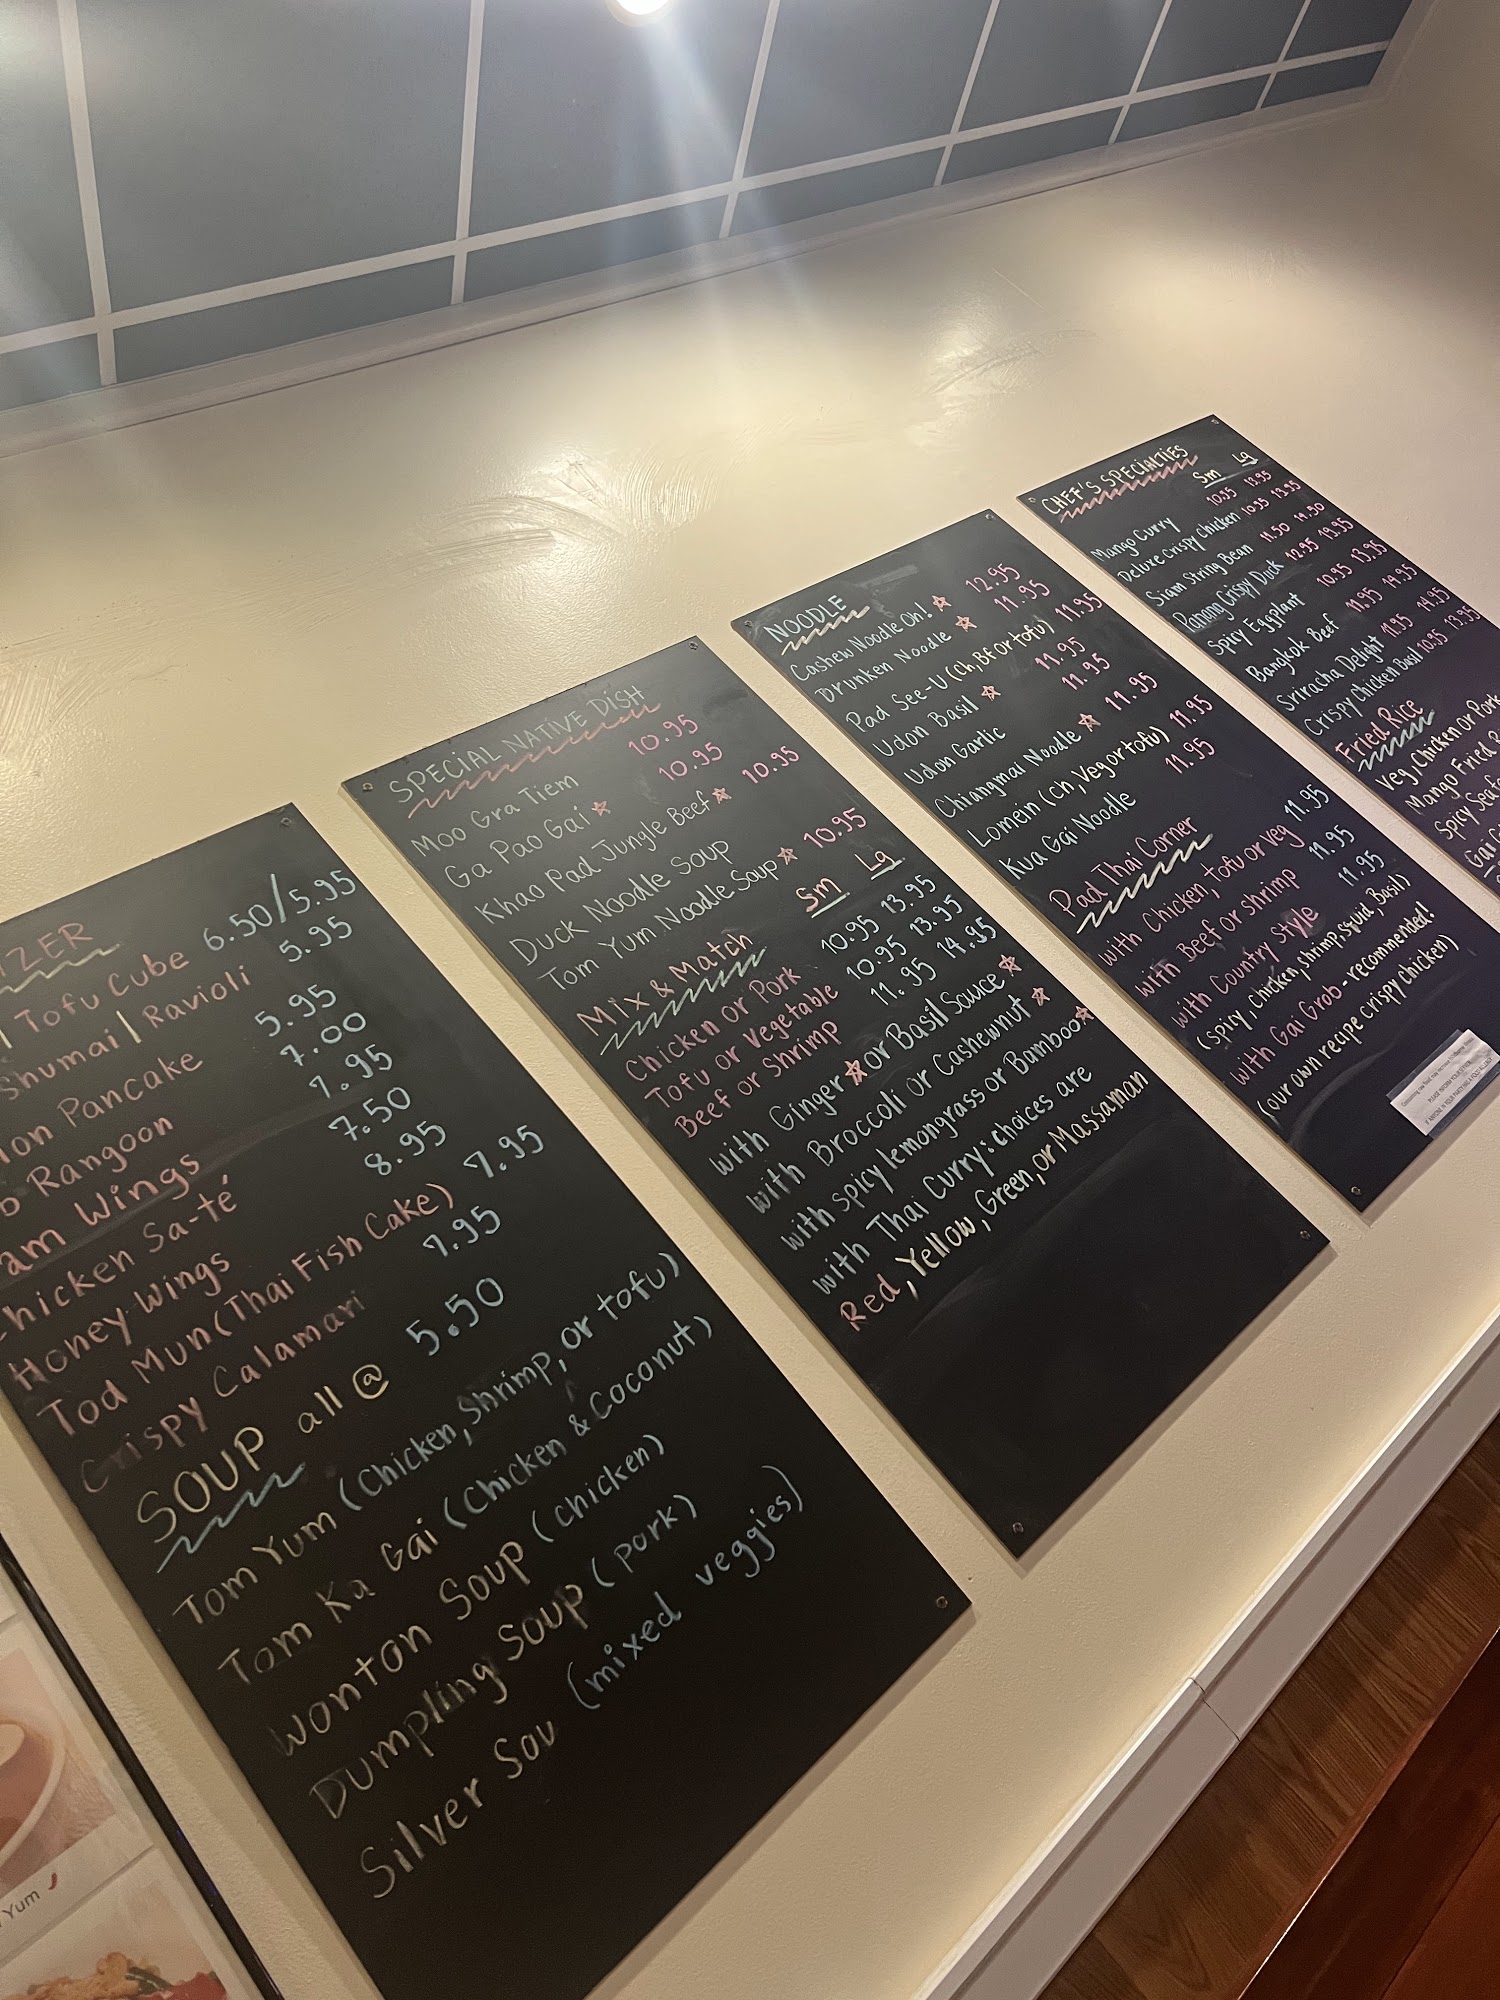 TIZER
Tofu Cube 6.50/5.95
Shumai/Ravioli 5.95
Pancake 5.95
Rangoon 7.00
Wings 7.95
Chicken Sa-té 7.50
Honey Wings 8.95
Tod Mun (Thai Fish Cake) 7.95
Crispy Calamari 7.95
SOUP all @ 5.50
Tom Yum (Chicken, Shrimp, or tofu)
Tom Ka Gai (Chicken & Coconut)
Wonton Soup (chicken)
Dumpling Soup (pork)
Silver Sou (mixed veggies)
SPECIAL NATIVE DISH
Moo Gra Tiem 10.95
Ga Pao Gai 10.95
Khao Pad Jungle Beef 10.95
Duck Noodle Soup
Tom Yum Noodle Soup 10.95
Mix & Match Sm Lg
Chicken or Pork 10.95 13.95
Tofu or Vegetable 10.95 13.95
Beef or Shrimp 11.95 14.95
with Ginger or Basil Sauce
with Broccoli or Cashewnut
with spicy lemongrass or Bamboo
with Thai Curry: choices are
Red, Yellow, Green, or Massaman
NOODLE
Cashew Noodle Oh! 12.95
Drunken Noodle 11.95
Pad See-U (Ch, Bf or tofu) 11.95
Udon Basil 11.95
Udon Garlic 11.95
Chiangmai Noodle 11.95
Lomein (ch, Veg or tofu) 11.95
Kua Gai Noodle 11.95
Pad Thai Corner
with Chicken, tofu or veg 11.95
with Beef or shrimp 11.95
with Country Style 11.95
(spicy, chicken, shrimp, squid, Basil)
with Gai Grob - recommended!
(our own recipe crispy chicken)
CHEF'S SPECIALTIES Sm Lg
Mango Curry 10.95 13.95
Deluxe Crispy Chicken 10.95 13.95
Siam String Bean 11.50 14.50
Panang Crispy Duck 12.95 19.95
Spicy Eggplant 10.95 13.95
Bangkok Beef 11.95 14.95
Sriracha Delight 11.95 14.95
Crispy Chicken Basil 10.95 13.95
Fried Rice
Veg, Chicken or Pork
Mango Fried
Spicy
Gai
Yum